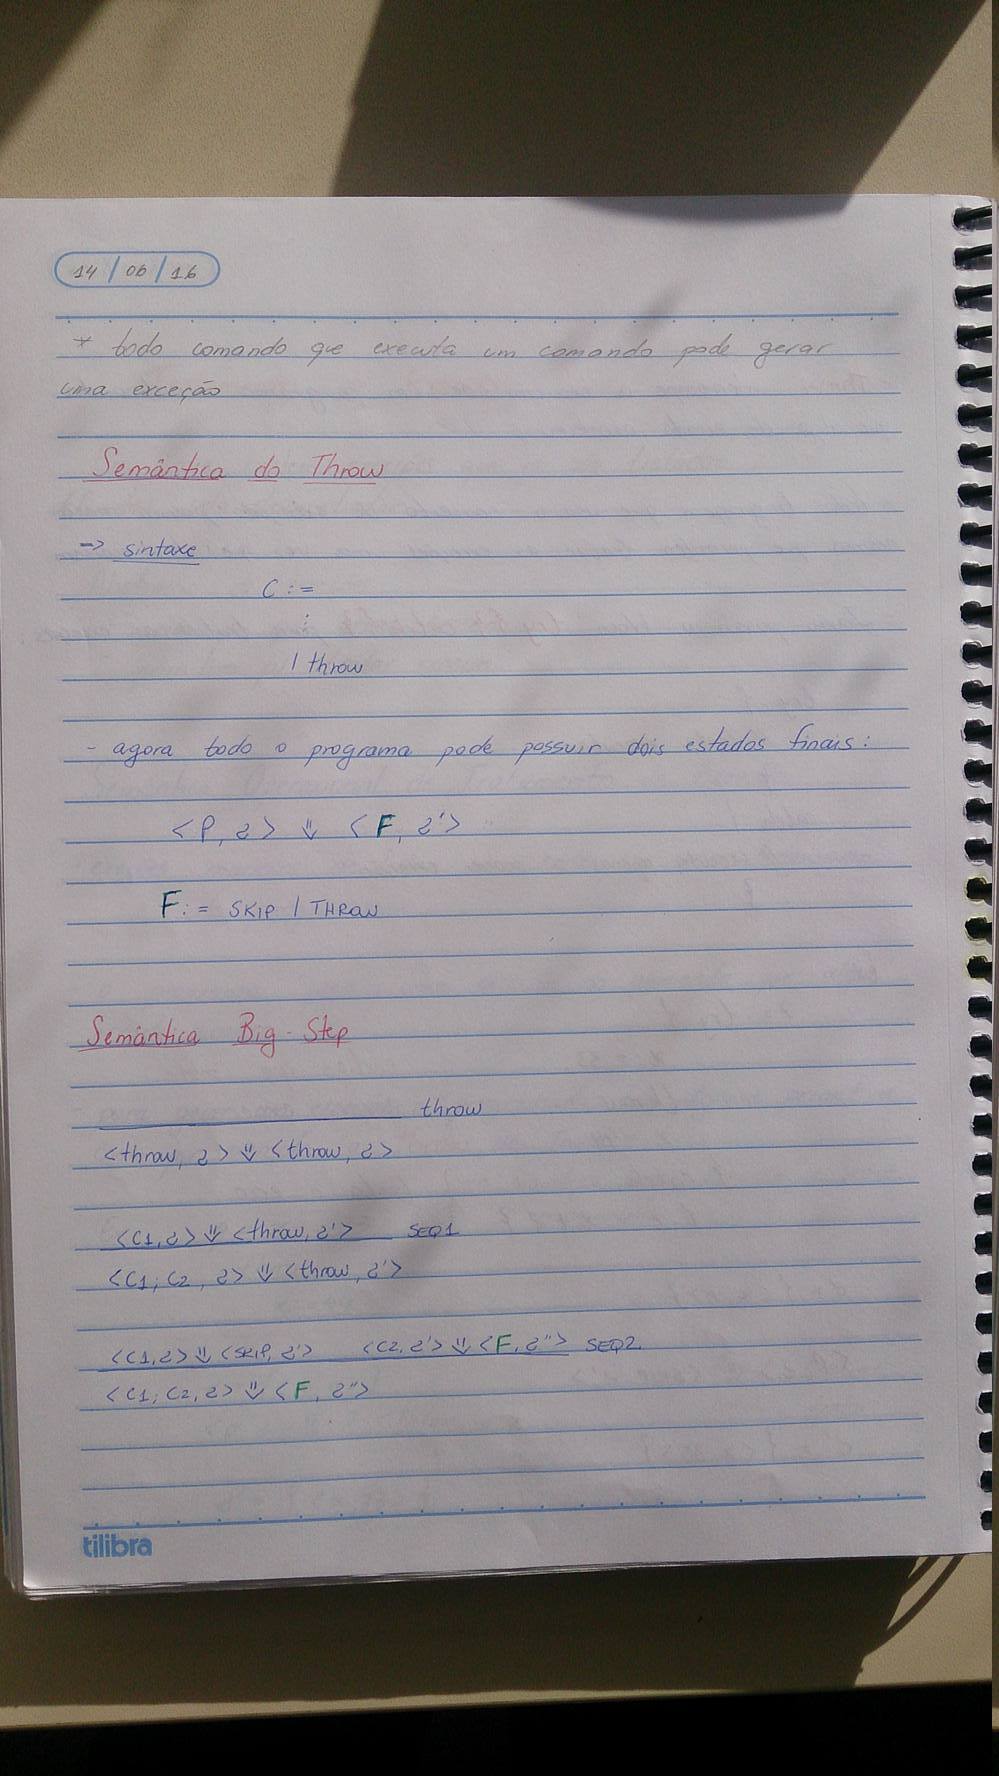 14 / 06 / 16
* todo comando que executa um comando pode gerar
uma exceção
Semântica do Throw
-> sintaxe
C :=
⋮
| throw
- agora todo o programa pode possuir dois estados finais:
<P, 2> ⇓ <F, 2'>
F := SKIP | THROW
Semântica Big-Step
throw
<throw, 2> ⇓ <throw, 2>
<C1, 2> ⇓ <throw, 2'> SEQ1
<C1; C2, 2> ⇓ <throw, 2'>
<C1, 2> ⇓ <SKIP, 2'> <C2, 2'> ⇓ <F, 2''> SEQ2
<C1; C2, 2> ⇓ <F, 2''>
tilibra